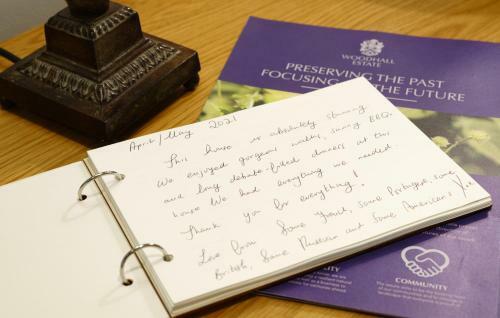 WOODHALL
ESTATE
PRESERVING THE PAST
FOCUSING THE FUTURE
April/May 2021
This house is absolutely stunning
We enjoyed gorgeous walks, sunny BBQs
and long debate-filled dinners at this
house. We had everything we needed.
Thank you for everything!
Love from Some French, some Portuguese, some
British, Some Russian and Some Americans
COMMUNITY